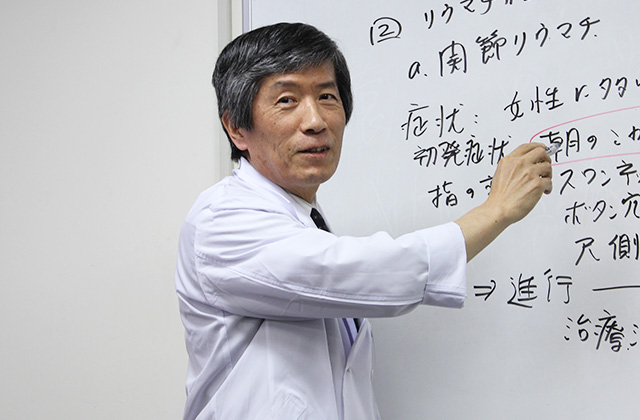 ② リウマチ
a. 関節リウマチ
症状: 女性に多い
初発症状 朝のこわ
指の
スワンネ
ボタン穴
尺側
⇒ 進行 —
治療